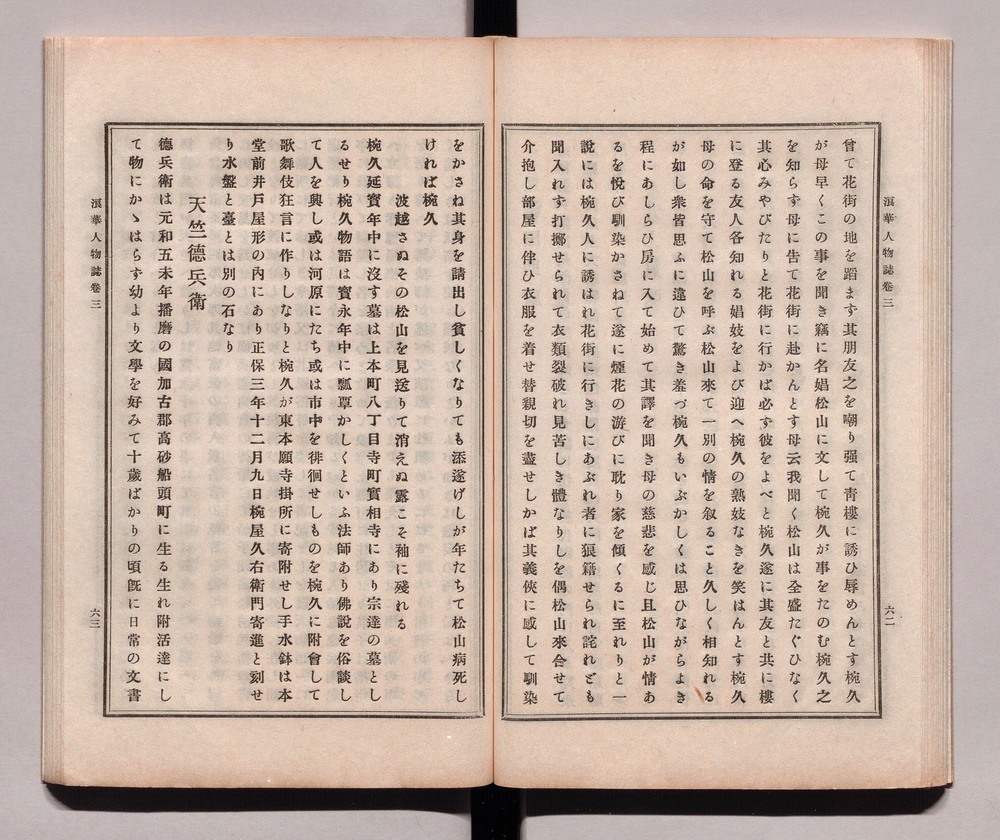 浪華人物誌卷三
六二
曾て花街の地を蹈ます其朋友之を嘲り强て靑樓に誘ひ辱めんとす椀久
が母早くこの事を聞き竊に名娼松山に文して椀久が事をたのむ椀久之
を知らす母に告て花街に赴かんとす母云我聞く松山は全盛たぐひなく
其心みやびたりと花街に行かば必ず彼をよべと椀久遂に其友と共に樓
に登る友人各知れる娼妓をよび迎へ椀久の熟妓なきを笑はんとす椀久
母の命を守て松山を呼ぶ松山來て一別の情を叙ること久しく相知れる
が如し衆皆思ふに違ひて驚き羞づ椀久もいぶかしくは思ひながらよき
程にあしらひ房に入て始めて其譯を聞き母の慈悲を感じ且松山が情あ
るを悅び馴染かさねて遂に煙花の游びに耽り家を傾くるに至れりと一
說には椀久人に誘はれ花街に行きしにあぶれ者に狼籍せられ詫れども
聞入れず打擲せられて衣類裂破れ見苦しき體なりしを偶松山來合せて
介抱し部屋に伴ひ衣服を着せ替親切を盡せしかば其義俠に感して馴染
をかさね其身を請出し貧しくなりても添遂げしが年たちて松山病死し
ければ椀久
波越さぬその松山を見送りて消えぬ露こそ袖に殘れる
椀久延寳年中に沒す墓は上本町八丁目寺町實相寺にあり宗達の墓とし
るせり椀久物語は寳永年中に瓢覃かしくといふ法師あり佛說を俗談し
て人を興し或は河原にたち或は市中を徘徊せしものを椀久に附會して
歌舞伎狂言に作りしなりと椀久が東本願寺掛所に寄附せし手水鉢は本
堂前井戸屋形の內にあり正保三年十二月九日椀屋久右衛門寄進と刻せ
り水盤と臺とは別の石なり
天竺德兵衛
德兵衛は元和五未年播磨の國加古郡高砂船頭町に生る生れ附活達にし
て物にかゝはらす幼より文學を好みて十歲ばかりの頃旣に日常の文書
浪華人物誌卷三
六三